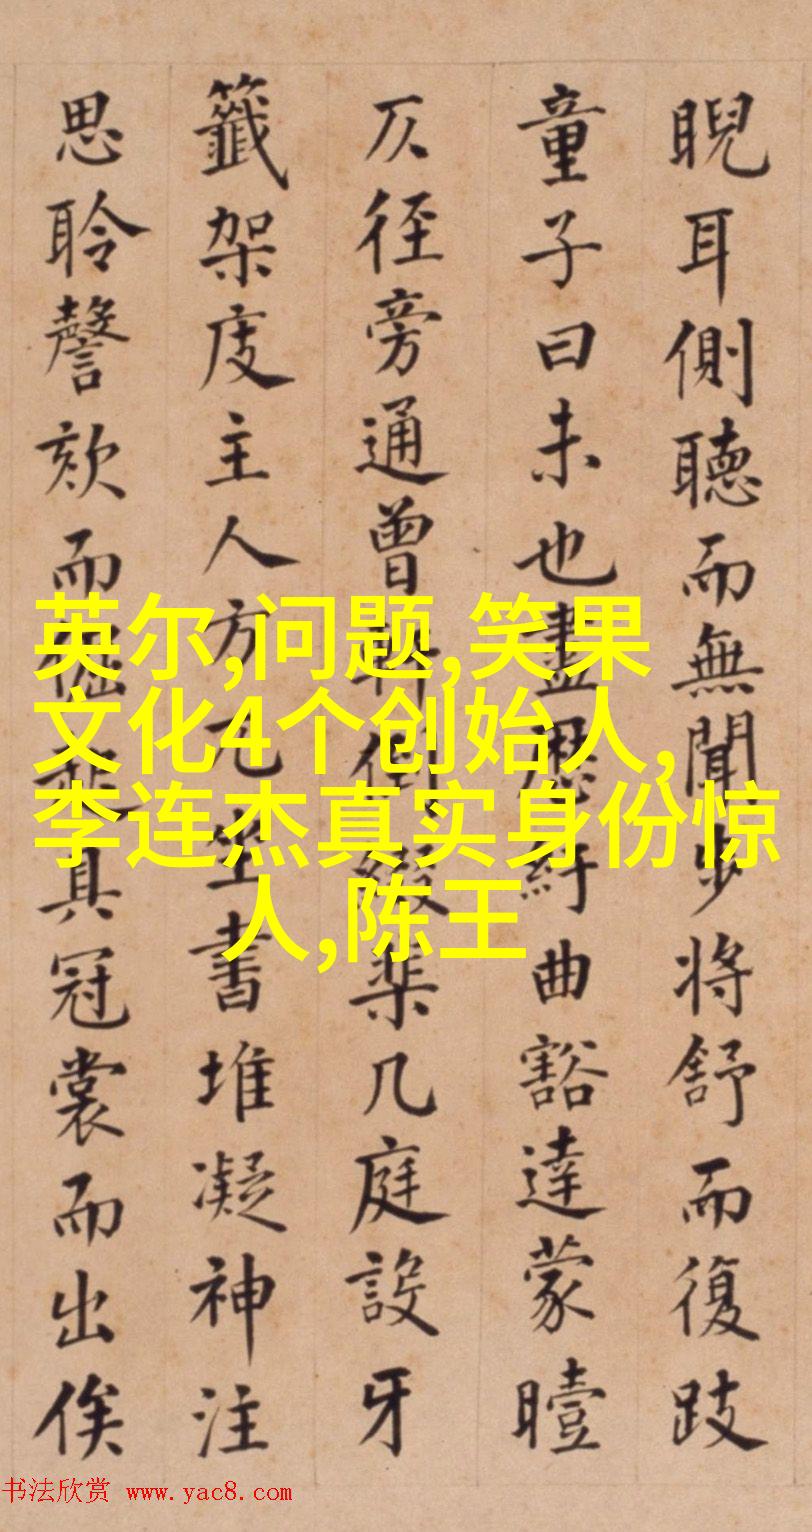 睨耳側聽而無聞步將舒而復跂
童子曰未也盡歷紆曲豁達蒙曀
仄徑旁通曾軒綴棐几庭設牙
籤架庋主人方兀坐書堆凝神注
思聆謦欬而倔起具冠裳而出俟
英尔,问题,笑果
文化4个创始人,
李连杰真实身份惊
人,陈王
书法欣赏 www.yac8.com